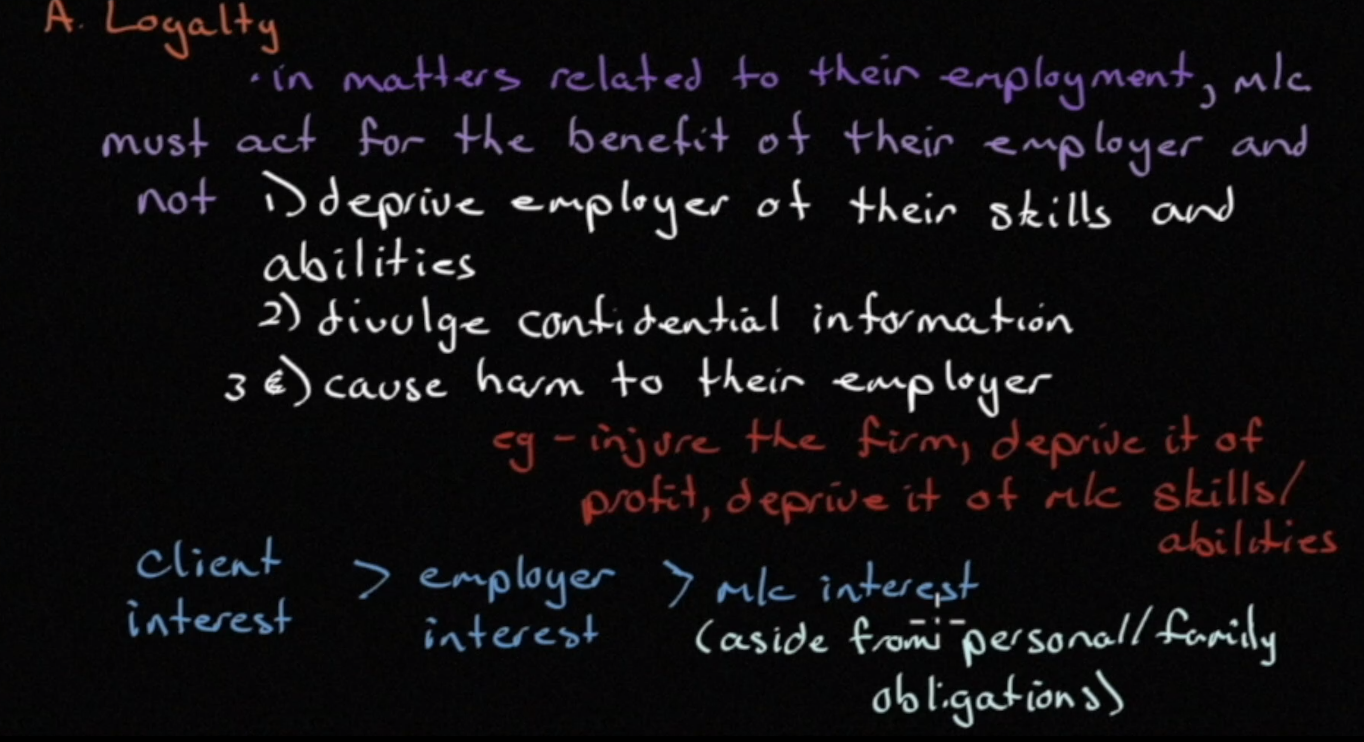 A. Loyalty
· in matters related to their employment, m/c
must act for the benefit of their employer and
not 1) deprive employer of their skills and
abilities
2) divulge confidential information
3 €) cause harm to their employer
eg - injure the firm, deprive it of
profit, deprive it of m/c skills/
abilities
client > employer > m/c interest
interest interest (aside from personal/family
obligations)